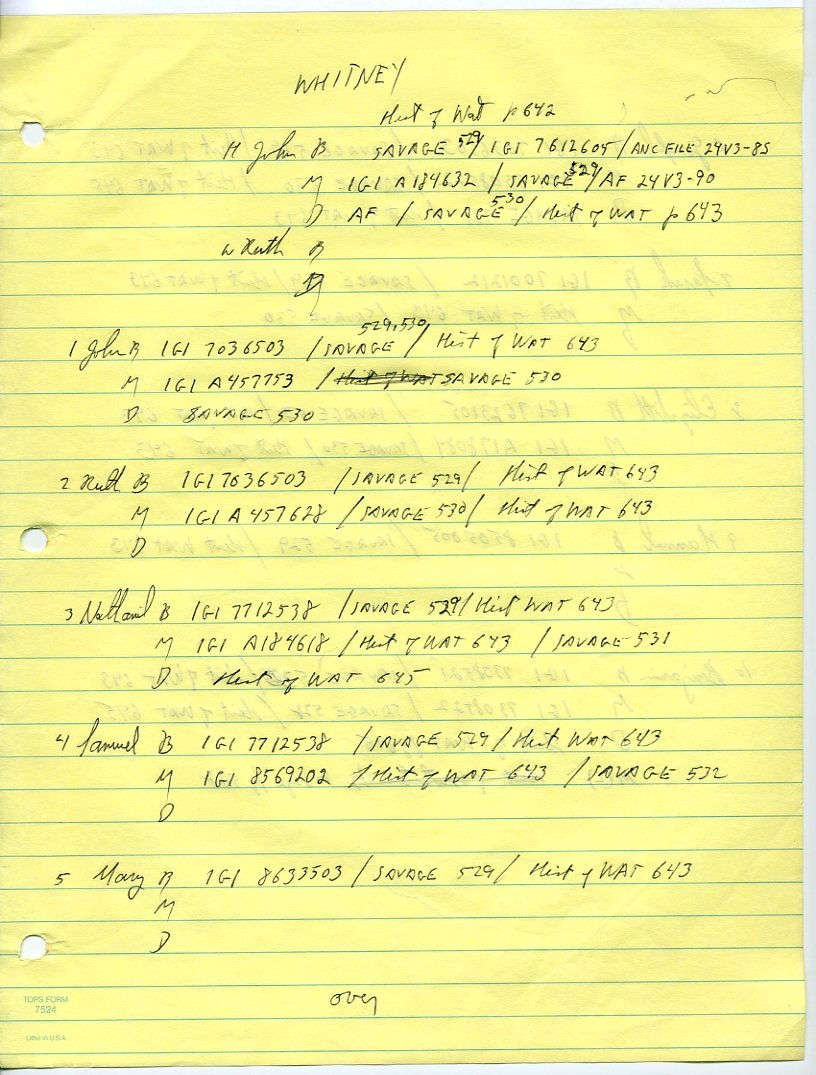 WHITNEY
Hist of Wat p 642
H John B SAVAGE 529 / IGI 7612605 / ANC FILE 24V3-8S
M IGI A184632 / SAVAGE 529 / AF 24V3-90
D AF / SAVAGE 530 / Hist of WAT p 643
W Ruth B
D
1 John B IGI 7036503 / SAVAGE 529,530 / Hist of WAT 643
M IGI A457753 / Hist of WAT SAVAGE 530
D SAVAGE 530
2 Ruth B IGI 7036503 / SAVAGE 529 / Hist of WAT 643
M IGI A457628 / SAVAGE 530 / Hist of WAT 643
D
3 Nathaniel B IGI 7712538 / SAVAGE 529 / Hist WAT 643
M IGI A184618 / Hist of WAT 643 / SAVAGE 531
D Hist of WAT 645
4 Samuel B IGI 7712538 / SAVAGE 529 / Hist WAT 643
M IGI 8569202 / Hist of WAT 643 / SAVAGE 532
D
5 Mary B IGI 8633503 / SAVAGE 529 / Hist of WAT 643
M
D
over
TOPS FORM
7524
Litho in U.S.A.